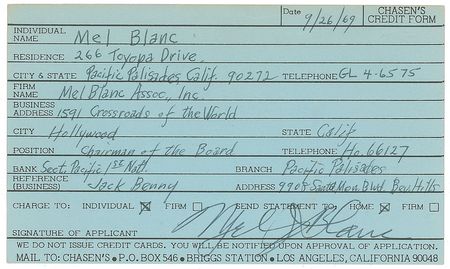 Date 9/26/69 CHASEN'S CREDIT FORM
INDIVIDUAL NAME Mel Blanc
RESIDENCE 266 Toyopa Drive
CITY & STATE Pacific Palisades, Calif. 90272 TELEPHONE GL 4-6575
FIRM NAME Mel Blanc Assoc., Inc.
BUSINESS ADDRESS 1591 Crossroads of the World
CITY Hollywood STATE Calif
POSITION Chairman of the Board TELEPHONE Ho. 66127
BANK Sect. Pacific 1st Natl BRANCH Pacific Palisades
REFERENCE (BUSINESS) Jack Benny ADDRESS 9908 Santa Mon. Blvd Bev. Hills
CHARGE TO: INDIVIDUAL FIRM SEND STATEMENT TO: HOME FIRM
SIGNATURE OF APPLICANT Mel J Blanc
WE DO NOT ISSUE CREDIT CARDS. YOU WILL BE NOTIFIED UPON APPROVAL OF APPLICATION.
MAIL TO: CHASEN'S • P.O. BOX 546 • BRIGGS STATION • LOS ANGELES, CALIFORNIA 90048